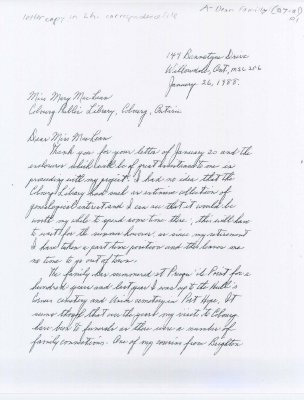 letter copy in L.h. correspondence file
A - Dean Family (87-88)
149 Bannatyne Drive
Willowdale, Ont. M2L 2P6
January 26, 1988.
Miss Mary MacLean
Cobourg Public Library, Cobourg, Ontario
Dear Miss MacLean
Thank you for your letter of January 20 and the
enclosures which will be of great assistance to me in
proceeding with my project. I had no idea that the
Cobourg Library had such an extensive collection of
genealogical material and I can see that it would be
worth my while to spend some time there; this will have
to wait for the summer however as since my retirement
I have taken a part time position and the hours are
no time to go out of town.
The family has summered at Presqu'ile Point for a
hundred years and last year I was up to the
cemetery and Union cemetery in Port Hope. It
seems though that over the years my visits to Cobourg
have been to funerals as there were a number of
family connections. One of my cousins from Brighton